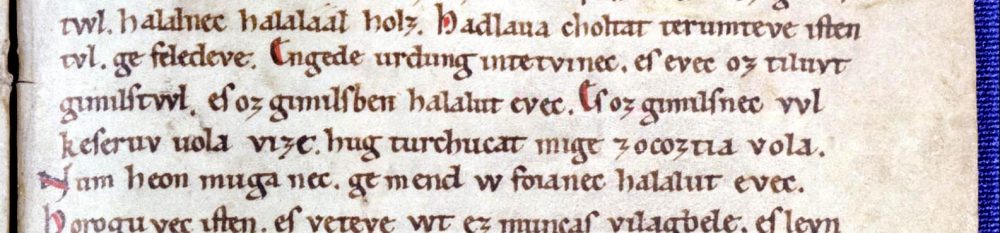 twl. halalnec halalaal holz. Hadlaua choltat terumteve iſten
tvl. ge feledeve. Engede urdung intetvinec. eſ evec oz tiluvt
gimilſtvvl. eſ oz gimilſben halalut evec. Eſ oz gimilſnec vvl
keſeruv uola vize. hug turchucat mige zocoztia vola.
Num heon muga nec. ge mend w foianec halalut evec.
Horogu vec iſten. eſ veteve wt ez muncaſ vilagbele. eſ levn